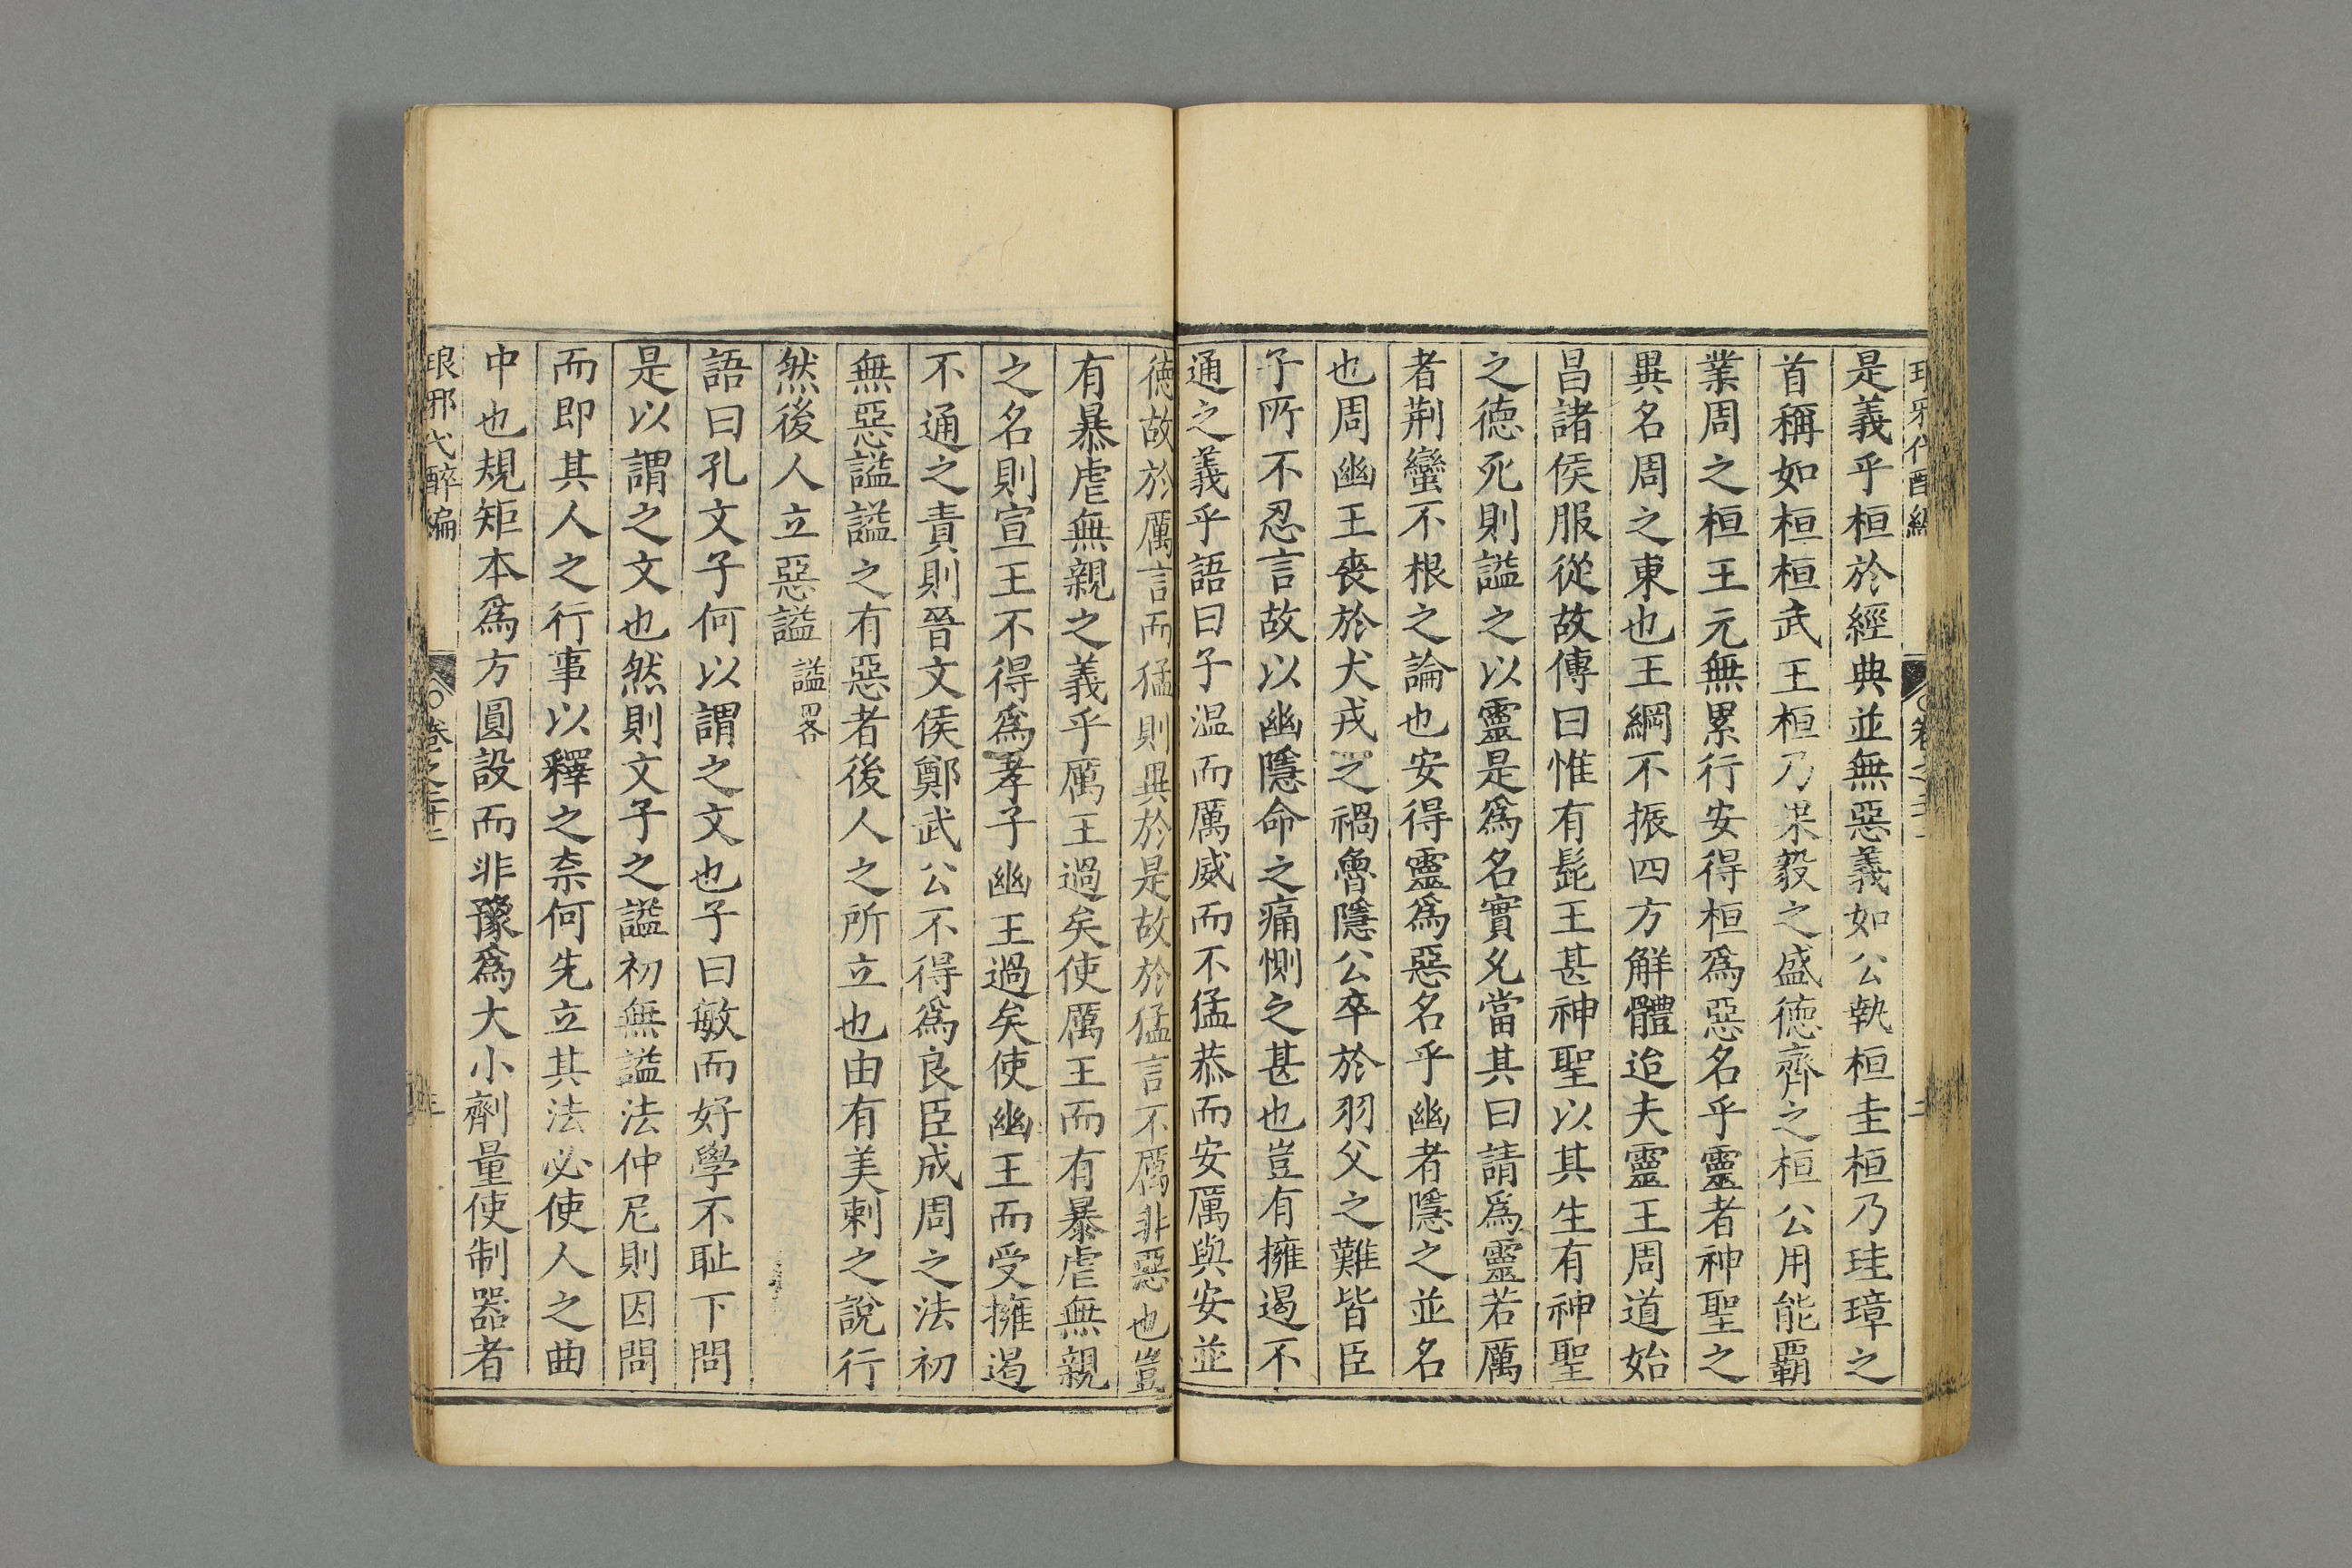 是義乎桓於經典並無惡義如公執桓圭桓乃珪璋之
首稱如桓桓武王桓乃果毅之盛徳齊之桓公用能覇
業周之桓王元無累行安得桓爲惡名乎靈者神聖之
異名周之東也王綱不振四方解體迨夫靈王周道始
昌諸侯服從故傳曰惟有髭王甚神聖以其生有神聖
之徳死則諡之以靈是爲名實允當其曰請爲靈若厲
者荆蠻不根之論也安得靈爲惡名乎幽者隱之並名
也周幽王喪於犬戎之禍魯隱公卒於羽父之難皆臣
子所不忍言故以幽隱命之痛惻之甚也豈有擁遏不
通之義乎語曰子温而厲威而不猛恭而安厲與安並
徳故於厲言而猛則異於是故於猛言不厲非惡也豈
有暴虐無親之義乎厲王過矣使厲王而有暴虐無親
之名則宣王不得爲孝子幽王過矣使幽王而受擁遏
不通之責則晉文侯鄭武公不得爲良臣成周之法初
無惡諡諡之有惡者後人之所立也由有美刺之說行
然後人立惡諡 諡畧
語曰孔文子何以謂之文也子曰敏而好學不耻下問
是以謂之文也然則文子之諡初無諡法仲尼則因問
而即其人之行事以釋之柰何先立其法必使人之曲
中也規矩本爲方圓設而非豫爲大小劑量使制器者
琅邪代醉編 卷之三十二